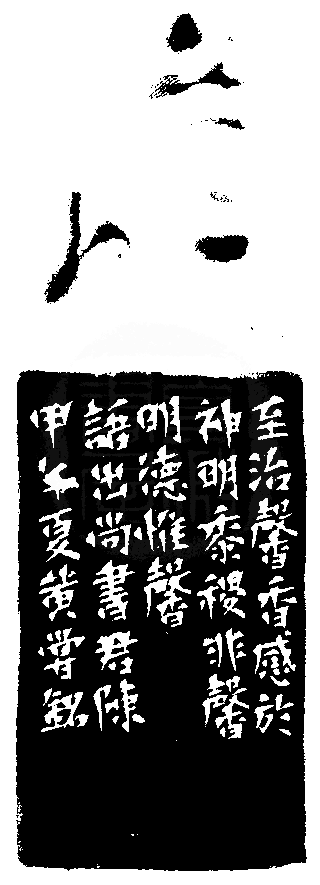 至治馨香感於
神明黍稷非馨
明德惟馨
語出尚書君陳
甲午夏黄嘗銘